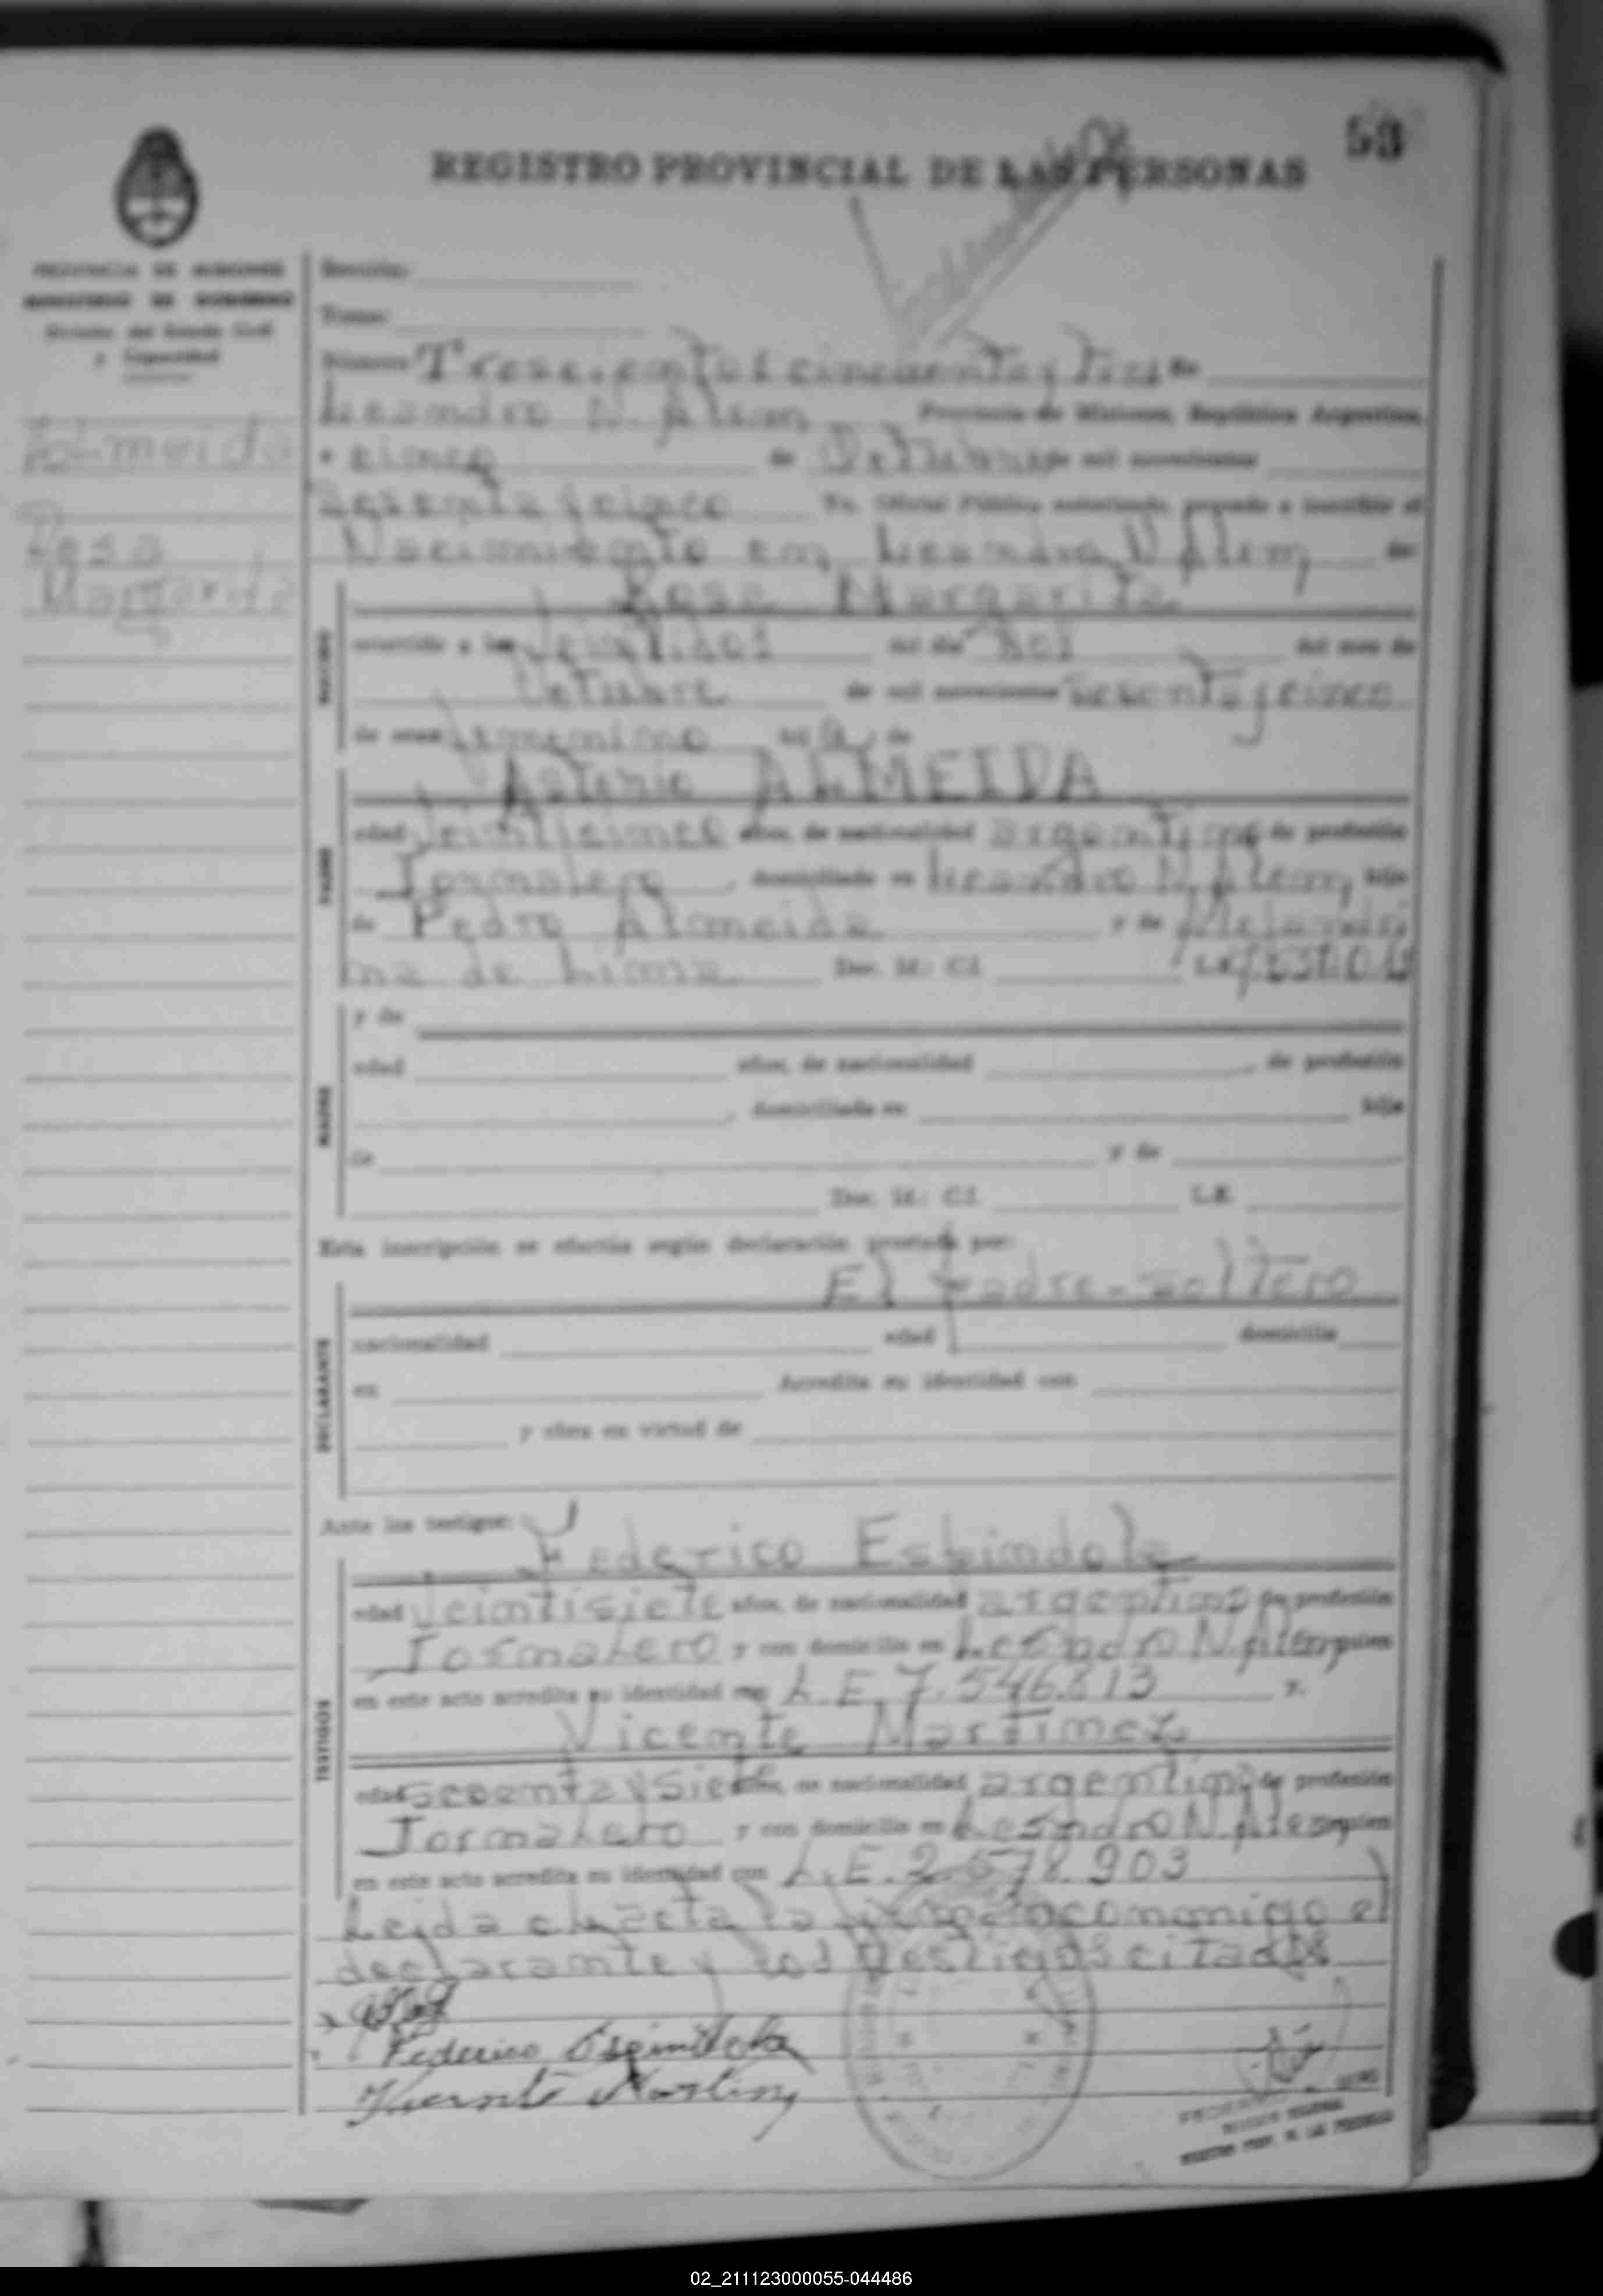 53
REGISTRO PROVINCIAL DE LAS PERSONAS
PROVINCIA DE MISIONES
MINISTERIO DE GOBIERNO
División del Estado Civil
y Capacidad
Almeida
Rosa
Margarita
Sección:
Tomo:
Número Trescientos cincuenta y tres En
Leandro N. Alem Provincia de Misiones, República Argentina,
a cinco de Octubre de mil novecientos
sesenta y cinco Yo, Oficial Público autorizado, procedo a inscribir el
Nacimiento en Leandro N Alem de:
Rosa Margarita
ocurrido a las veintidos del día dos del mes de
Octubre de mil novecientos sesenta y cinco
de sexo femenino hija de
PADRE
Asterio ALMEIDA
edad veinticinco años, de nacionalidad argentino de profesión
Jornalero, domiciliado en Leandro N. Alem, hijo
de Pedro Almeida y de
na de Lima Doc. Id.: C.I. L.E.
MADRE
y de
edad años, de nacionalidad, de profesión
, domiciliada en hija
de y de
Doc. Id.: C.I. L.E.
Esta inscripción se efectúa según declaración prestada por:
El padre-soltero
DECLARANTE
nacionalidad edad domicilio
en Acredita su identidad con
y obra en virtud de
Ante los testigos:
Federico Espindola
TESTIGOS
edad veintisiete años, de nacionalidad argentino de profesión
Jornalero y con domicilio en Leandro N. Alem quien
en este acto acredita su identidad con L.E. 7.546.813 y.
Vicente Martinez
edad sesenta y siete años, de nacionalidad argentino de profesión
Jornalero y con domicilio en Leandro N. Alem quien
en este acto acredita su identidad con L.E. 2.578.903
Leida el acta la conmigo el
declarante y los testigos citados
Federico Espindola
Vicente Martinez
02_211123000055-044486